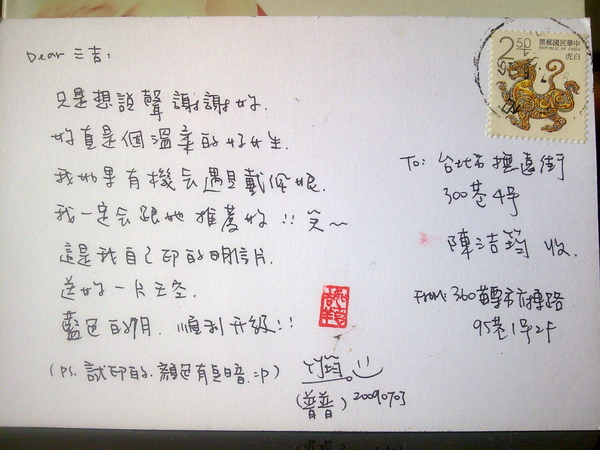 Dear 三吉：
只是想說聲謝謝妳.
妳真是個溫柔的好女生.
我如果有機会遇見戴佩妮.
我一定会跟她推薦妳!! 笑～
這是我自己印的明信片.
送妳一片天空.
藍色的7月. 順利升級!!
(PS. 試印的. 顏色有點暗 =p)
筠
(普普) 20090703
2 50
中華民國郵票
REPUBLIC OF CHINA
白虎
To: 台北市撫遠街
300巷4号
陳洁筠 收.
From: 360苗栗市府東路
95巷1号2F